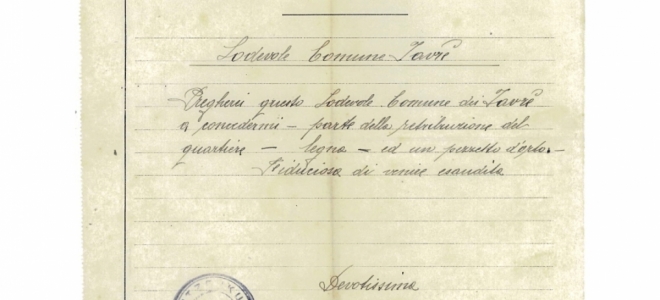 Lodevole Comune Javrè
Pregherei questo Lodevole Comune di Javrè
a concedermi - parte della retribuzione del
quartiere - legna - ed un pezzetto d'orto -
Fiduciosa di venire esaudita
Devotissima